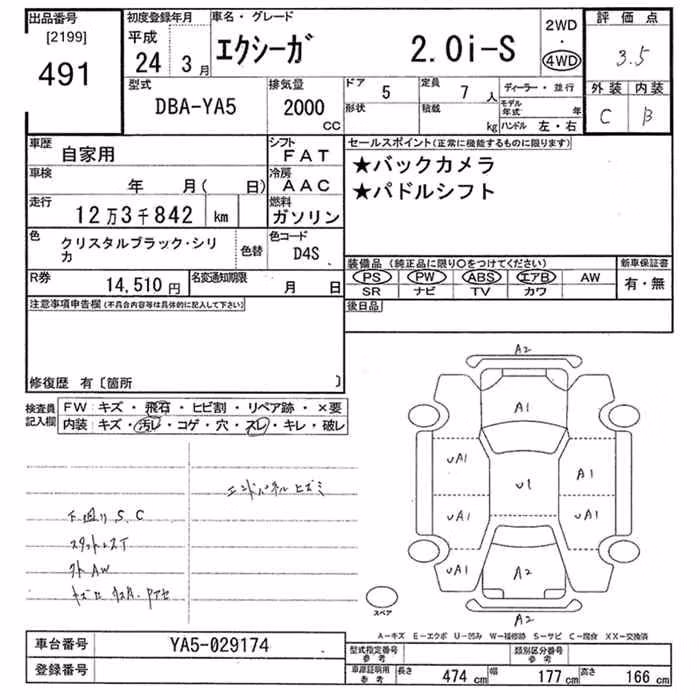 出品番号
[2199]
491
初度登録年月
平成
24 3月
車名・グレード
エクシーガ 2.0i-S
2WD
・
4WD
評価点
3.5
外装 内装
C B
型式
DBA-YA5
排気量
2000
CC
ドア
5
定員
7人
形状
積載
kg
ディーラー・並行
モデル年式 年
ハンドル 左・右
車歴
自家用
シフト
FAT
車検
年 月( 日)
冷房
AAC
走行
12万3千842 km
燃料
ガソリン
色
クリスタルブラック・シリカ
色替
色コード
D4S
R券
14,510円
名変通知期限
月 日
セールスポイント(正常に機能するものに限ります)
★バックカメラ
★パドルシフト
装備品(純正品に限り○をつけてください)
PS PW ABS エアB AW
SR ナビ TV カワ
新車保証書
有・無
後日品
注意事項申告欄(不具合内容等は具体的に記入して下さい)
修復歴 有〔箇所 〕
検査員記入欄
FW:キズ・飛石・ヒビ割・リペア跡・×要
内装:キズ・汚レ・コゲ・穴・スレ・キレ・破レ
エンドパネルヒズミ
下廻りS.C
スタットレスT
外AW
A2
A1
UA1
U1
A1
UA1
UA1
UA1
A2
A2
スペア
A-キズ E-エクボ U-凹み W-補修跡 S-サビ C-腐食 XX-交換済
車台番号
YA5-029174
登録番号
型式指定番号
参考
類別区分番号
参考
車庫証明用
参考
長さ 474cm
幅 177cm
高さ 166cm